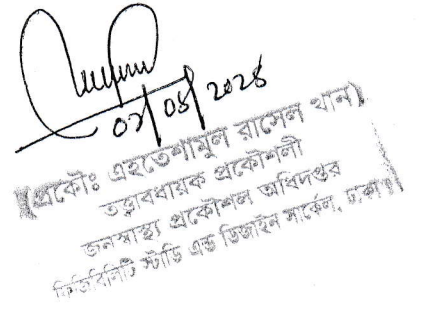 ০৭/০৪/২০২৪
(প্রকৌঃ এহতেশামুল রাসেল খান)
তত্ত্বাবধায়ক প্রকৌশলী
জনস্বাস্থ্য প্রকৌশল অধিদপ্তর
ফিজিবিলিটি স্টাডি এন্ড ডিজাইন সার্কেল, ঢাকা।